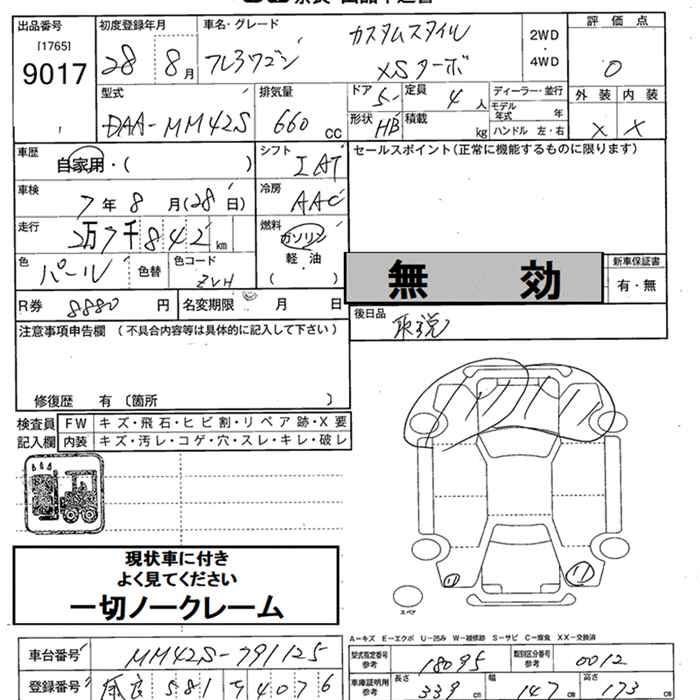 出品番号
[1765]
9017
初度登録年月
28 8 月
車名・グレード
カスタムスタイル
XSターボ
2WD
・
4WD
評価点
0
外装 内装
X X
型式
DAA-MM42S
排気量
660 CC
ドア 5 定員 4 人
形状 HB 積載 kg
ディーラー・並行
モデル年式 年
ハンドル 左・右
車歴
自家用・( )
シフト
IAT
セールスポイント(正常に機能するものに限ります)
車検
7年8月(28日)
冷房
AAC
走行
2万7千842 km
燃料
ガソリン
軽・油
( )
色
パール
色替
色コード
ZVH
無 効
新車保証書
有・無
R券 8880 円
名変期限 月 日
後日品
取説
注意事項申告欄 (不具合内容等は具体的に記入して下さい)
修復歴 有 〔箇所 〕
検査員
記入欄
FW キズ・飛石・ヒビ割・リペア跡・X要
内装 キズ・汚レ・コゲ・穴・スレ・キレ・破レ
現状車に付き
よく見てください
一切ノークレーム
スペア
A-キズ E-エクボ U-凹み W-補修跡 S-サビ C-腐食 XX-交換済
車台番号 MM42S-791125
登録番号 奈良 581
型式指定番号
参考
18095
類別区分番号
参考
0012
車庫証明用
参考
長さ 339 cm
幅 147 cm
高さ 173 cm